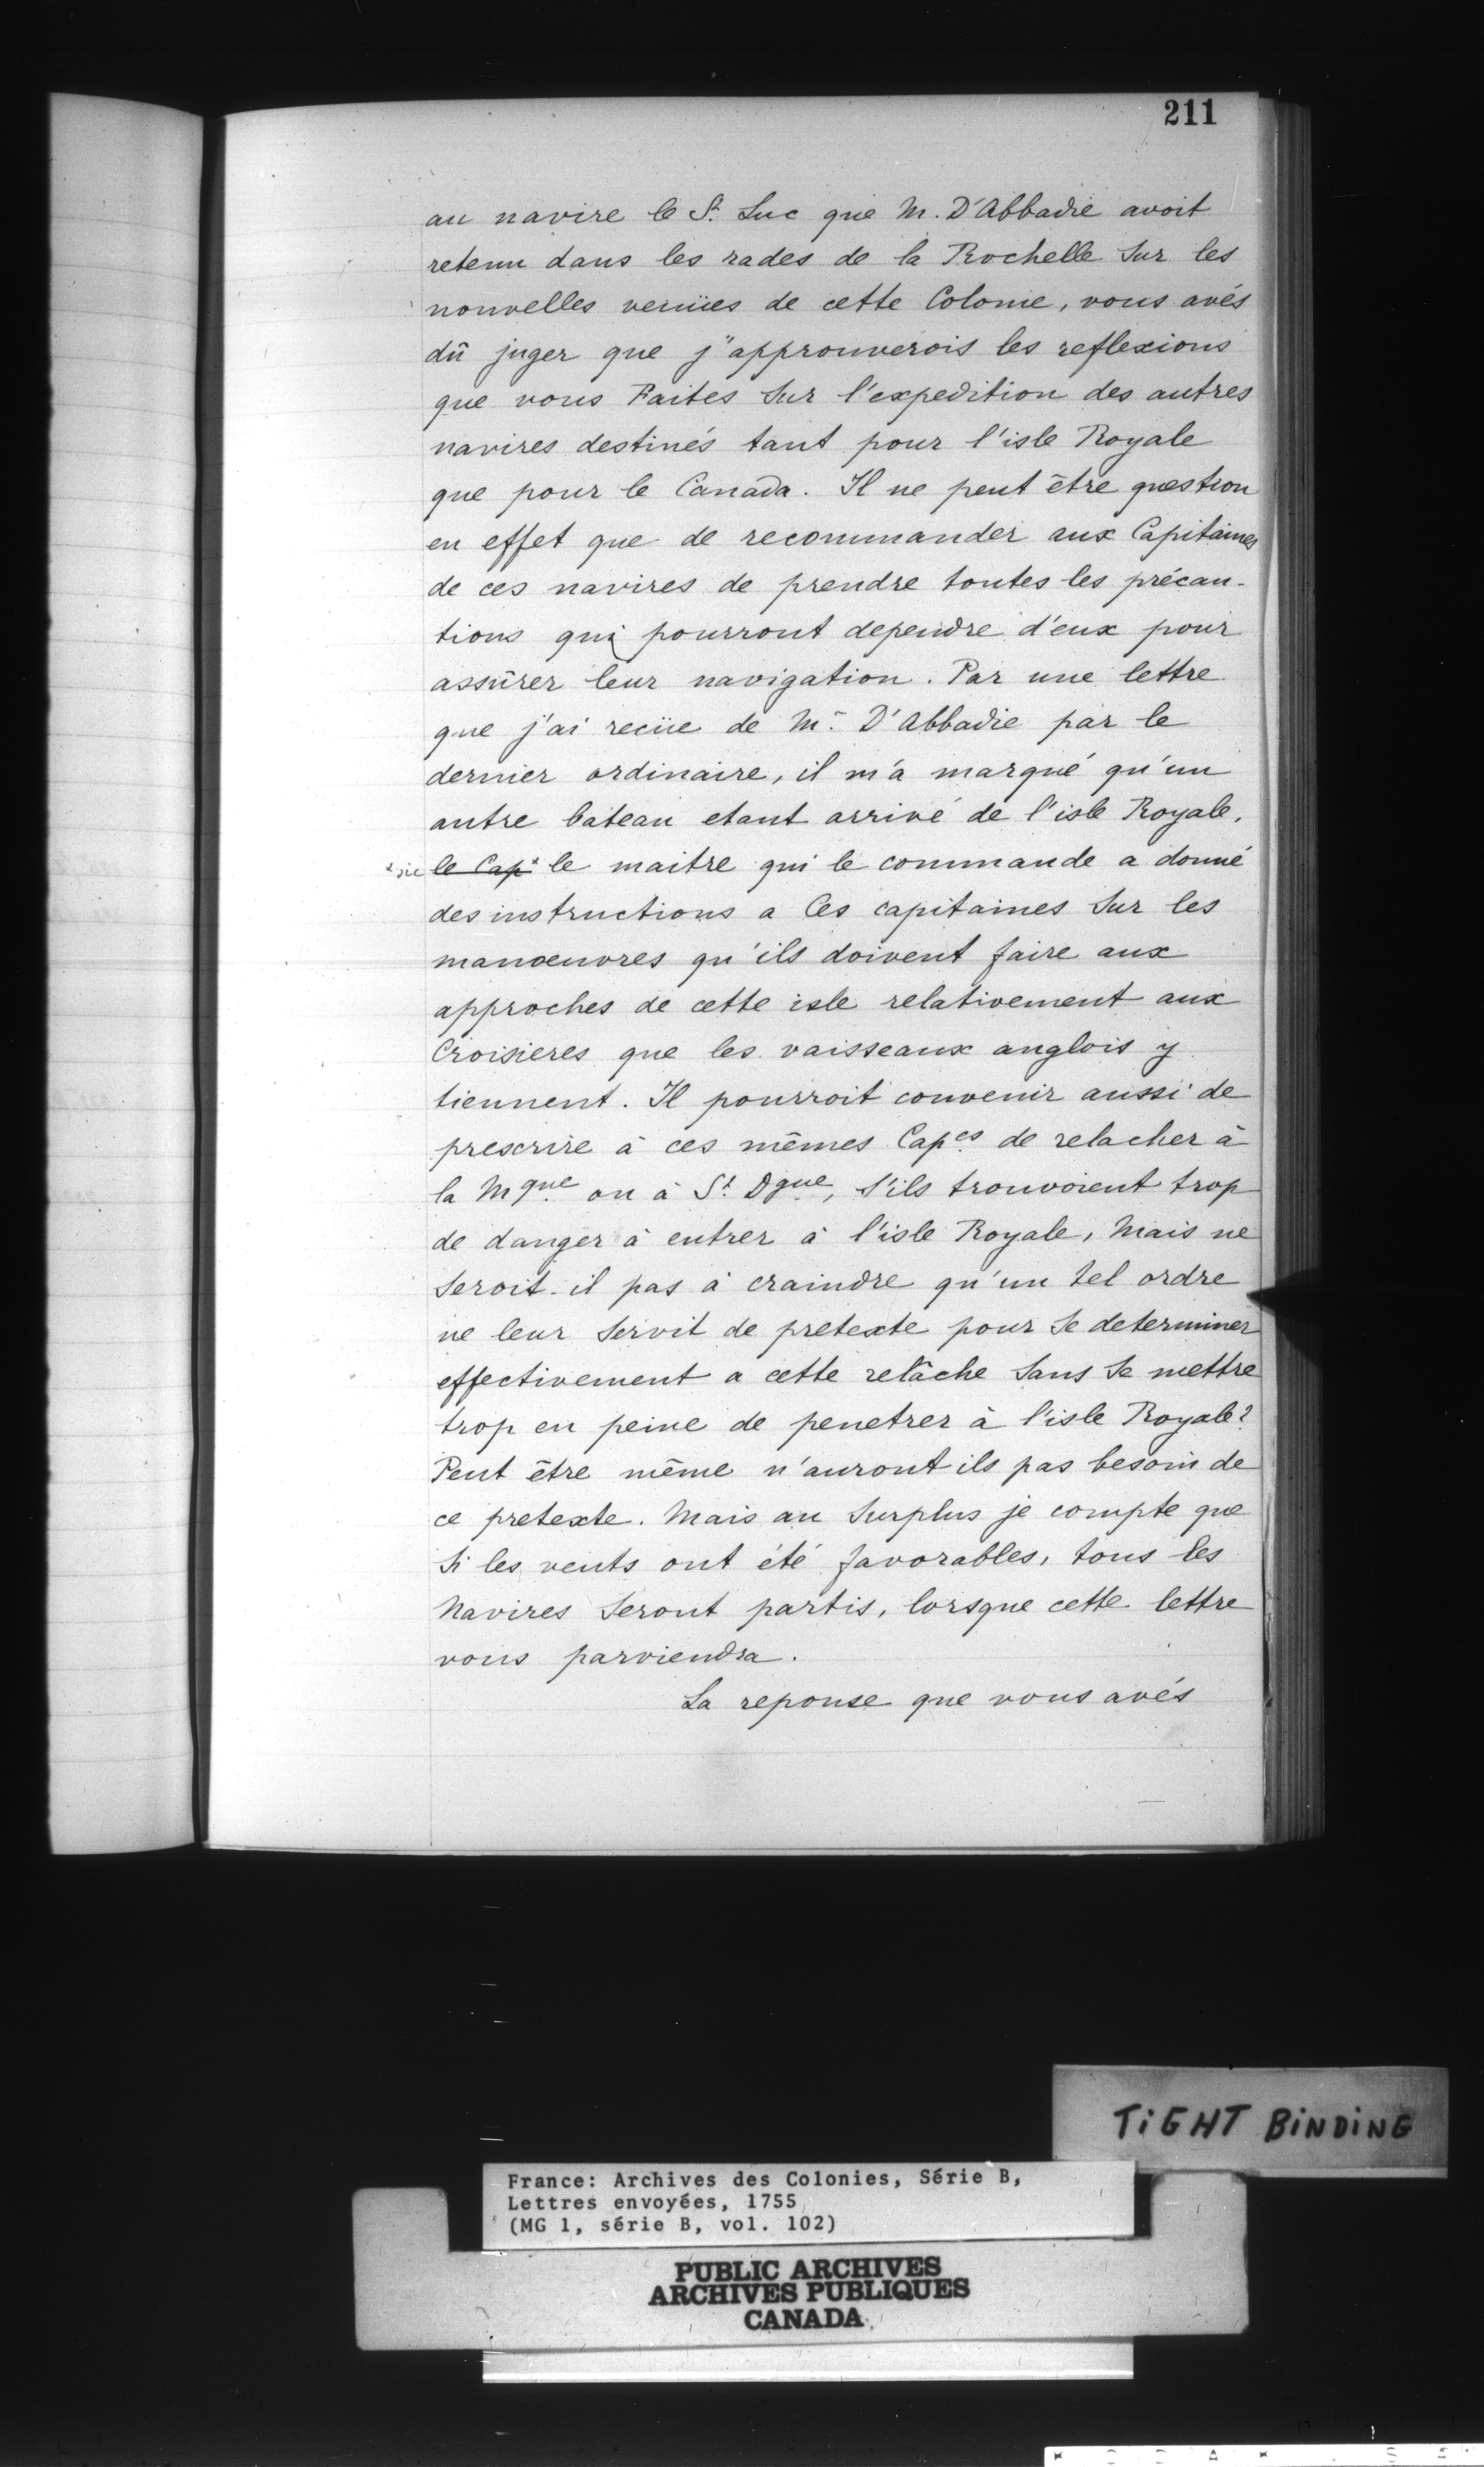 211
au navire le St. Luc que M. D'Abbadie avoit
retenu dans les rades de la Rochelle Sur les
nouvelles venües de cette Colonie, vous avés
dû juger que j'approuverois les reflexions
que vous Faites Sur l'expedition des autres
navires destinés tant pour l'isle Royale
que pour le Canada. Il ne peut être question
en effet que de recommander aux Capitaines
de ces navires de prendre toutes les précau-
tions qui pourront dependre d'eux pour
assûrer leur navigation. Par une lettre
que j'ai reciie de Mr. D'Abbadie par le
dernier ordinaire, il m'a marqué qu'un
autre bateau etant arrivé de l'isle Royale,
x sic le Cap x le maitre qui le commande a donné
des instructions a Ces capitaines Sur les
manœuvres qu'ils doivent faire aux
approches de cette isle relativement aux
Croisieres que les vaisseaux anglois y
tiennent. Il pourroit convenir aussi de
prescrire à ces mêmes Capes de relacher à
la Mque ou à St. Dgue, S'ils trouvoient trop
de danger à entrer à l'isle Royale, Mais ne
Seroit-il pas à craindre qu'un tel ordre
ne leur Servit de pretexte pour Se determiner
effectivement a cette relâche Sans Se mettre
trop en peine de penetrer à l'isle Royale?
Peut être même n'auront ils pas besoin de
ce pretexte. Mais au Surplus je compte que
Si les vents ont été favorables, tous les
Navires Seront partis, lorsque cette lettre
vous parviendra.
La reponse que vous avés
TiGHT BiNDiNG
France: Archives des Colonies, Série B,
Lettres envoyées, 1755
(MG 1, série B, vol. 102)
PUBLIC ARCHIVES
ARCHIVES PUBLIQUES
CANADA